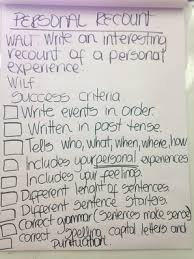 PERSONAL RECOUNT
WALT: Write an interesting
recount of a personal
experience.
WILF
Success criteria
Write events in order.
Written in past tense.
Tells who, what, when, where, how
Includes your personal experiences
Includes your feelings.
Different lenght of sentences.
Different sentence starters.
Correct grammar (sentences make sense)
correct spelling, capital letters and
puntuation.